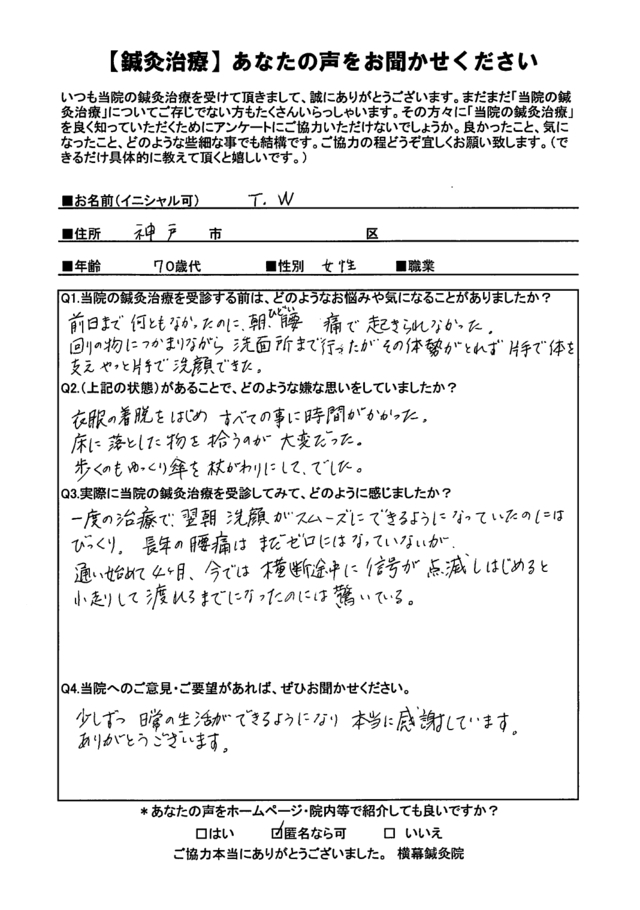 【鍼灸治療】あなたの声をお聞かせください
いつも当院の鍼灸治療を受けて頂きまして、誠にありがとうございます。まだまだ「当院の鍼
灸治療」についてご存じでない方もたくさんいらっしゃいます。その方々に「当院の鍼灸治療」
を良く知っていただくためにアンケートにご協力いただけないでしょうか。良かったこと、気に
なったこと、どのような些細な事でも結構です。ご協力の程どうぞ宜しくお願い致します。（で
きるだけ具体的に教えて頂くと嬉しいです。）
■お名前（イニシャル可） T. W
■住所 神戸 市 区
■年齢 70歳代 ■性別 女性 ■職業
Q1.当院の鍼灸治療を受診する前は、どのようなお悩みや気になることがありましたか？
前日まで何ともなかったのに、朝、ひどい腰痛で起きられなかった。
回りの物につかまりながら洗面所まで行ったがその体勢がとれず片手で体を
支えやっと片手で洗顔できた。
Q2.（上記の状態）があることで、どのような嫌な思いをしていましたか？
衣服の着脱をはじめすべての事に時間がかかった。
床に落とした物を拾うのが大変だった。
歩くのもゆっくり傘を杖がわりにして、でした。
Q3.実際に当院の鍼灸治療を受診してみて、どのように感じましたか？
一度の治療で、翌朝洗顔がスムーズにできるようになっていたのには
びっくり。長年の腰痛はまだゼロにはなっていないが、
通い始めて4ヶ月、今では横断途中に信号が点滅しはじめると
小走りして渡れるまでになったのには驚いている。
Q4.当院へのご意見・ご要望があれば、ぜひお聞かせください。
少しずつ日常の生活ができるようになり本当に感謝しています。
ありがとうございます。
＊あなたの声をホームページ・院内等で紹介しても良いですか？
□はい ☑匿名なら可 □ いいえ
ご協力本当にありがとうございました。 横幕鍼灸院